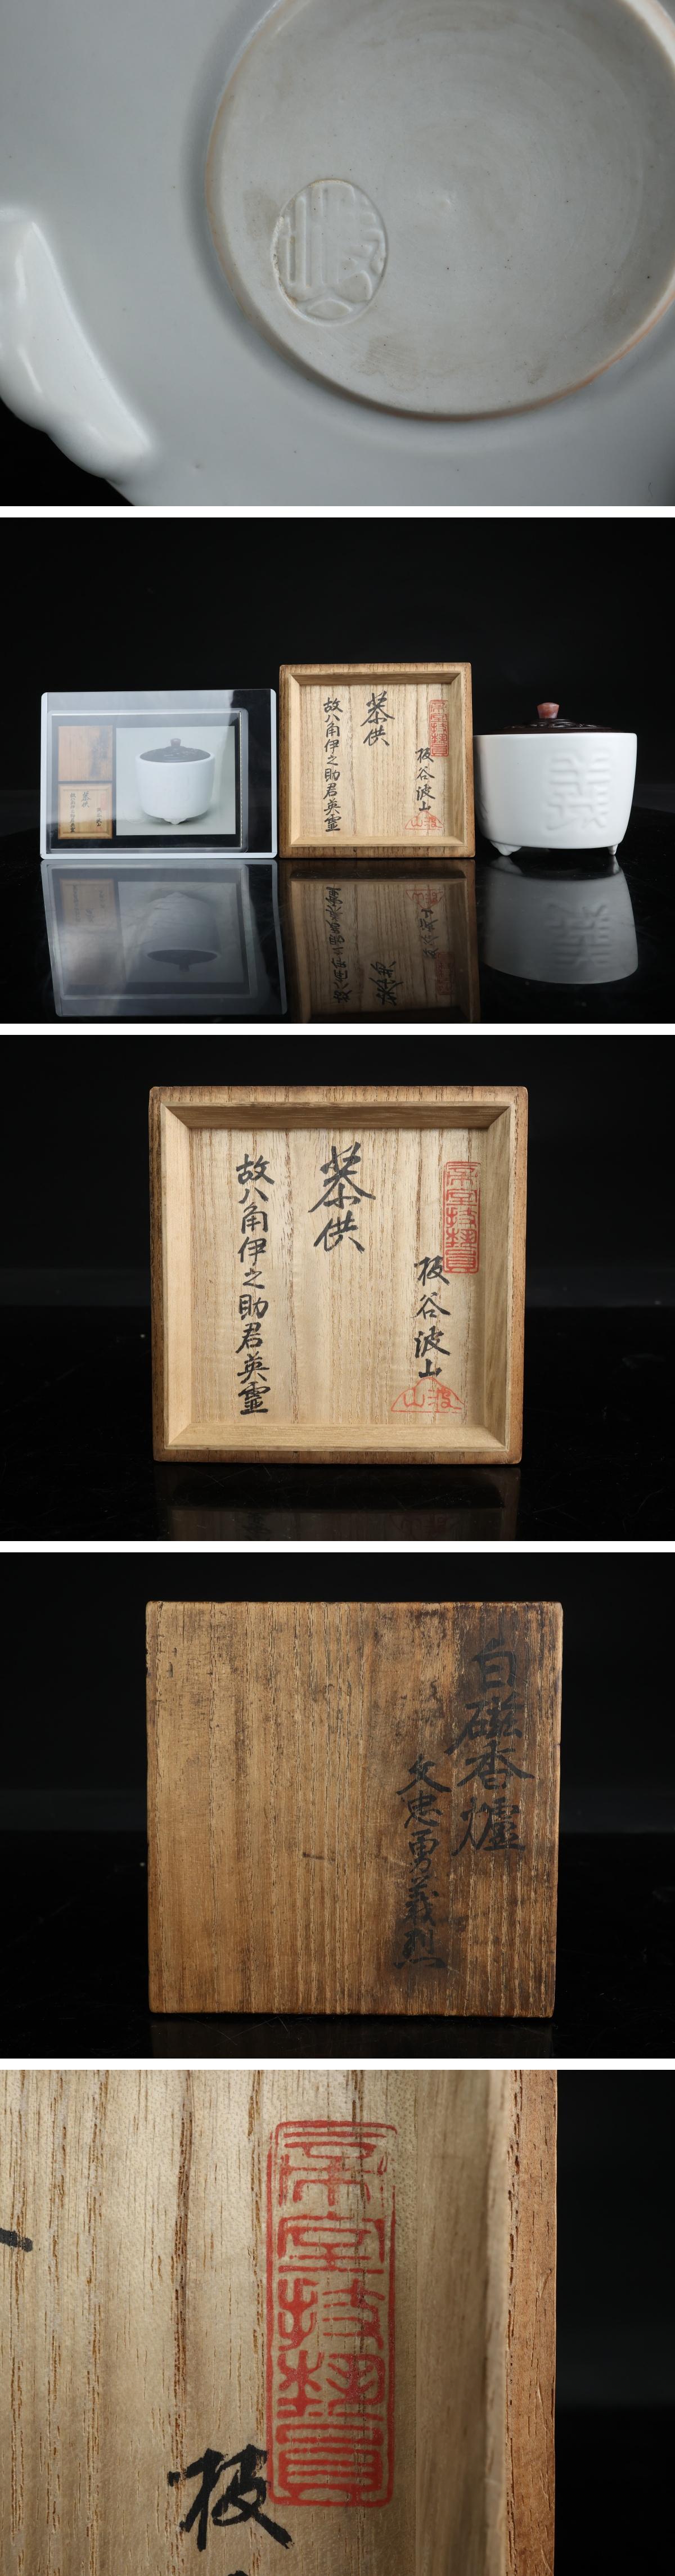 波山
帝室技藝員
板谷波山
波山
恭供
故八角伊之助君英靈
義
帝室技藝員
板谷波山
波山
恭供
故八角伊之助君英靈
白磁香爐
文忠勇義烈
帝室技藝員
板